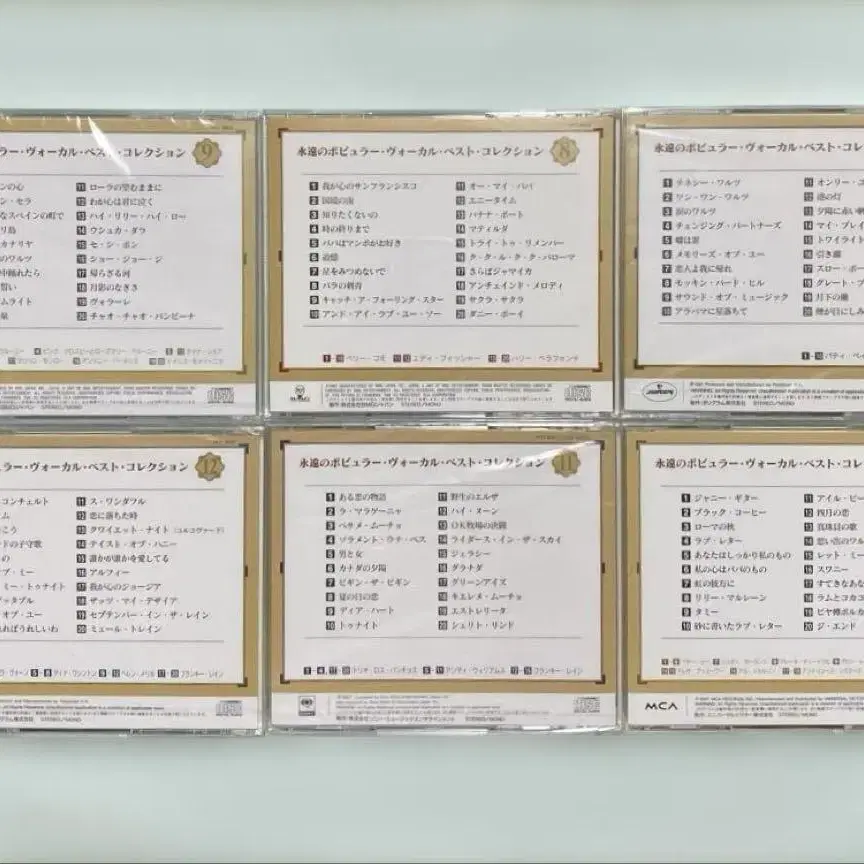 ラー・ヴォーカル・ベスト・コレクション 9
ンの心
ン・セラ
なスペインの町で
リ島
カナリヤ
のワルツ
中触れたら
誓い
ムライト
11 ローラの望むままに
12 わが心は君に泣く
13 ハイ・リリー・ハイ・ロー
14 ウシュカ・ダラ
15 セ・シ・ボン
16 ショー・ジョー・ジ
17 帰らざる河
18 月影のなぎさ
19 ヴォラーレ
20 チャオ・チャオ・バンビーナ
永遠のポピュラー・ヴォーカル・ベスト・コレクション 8
1 我が心のサンフランシスコ
2 国境の南
3 知りたくないの
4 時の終りまで
5 パパはマンボがお好き
6 追憶
7 星をみつめないで
8 バラの刺青
9 キャッチ・ア・フォーリング・スター
10 アンド・アイ・ラブ・ユー・ソー
11 オー・マイ・パパ
12 エニータイム
13 バナナ・ボート
14 マティルダ
15 トライ・トゥ・リメンバー
16 ク・ク・ル・ク・ク・パローマ
17 さらばジャマイカ
18 アンチェインド・メロディ
19 サクラ・サクラ
20 ダニー・ボーイ
1-10 ペリー・コモ 11 12 エディ・フィッシャー 13-20 ハリー・ベラフォンテ
永遠のポピュラー・ヴォーカル・ベスト・コレ
1 テネシー・ワルツ
2 ワン・ワン・ワルツ
3 涙のワルツ
4 チェンジング・パートナーズ
5 嘘は罪
6 メモリーズ・オブ・ユー
7 恋人よ我に帰れ
8 モッキン・バード・ヒル
9 サウンド・オブ・ミュージック
10 アラバマに星落ちて
11 オンリー・ユ
12 港の灯
13 夕陽に赤い帆
14 マイ・プレイ
15 トワイライト
16 引き潮
17 スロー・ボー
18 グレート・プ
19 月下の蘭
20 煙が目にしみ
1-10 パティ・ペイ
ラー・ヴォーカル・ベスト・コレクション 12
コンチェルト
ム
こう
ドの子守歌
の
・ミー
・ミー・トゥナイト
ッタブル
・オブ・ユー
ればうれしいわ
11 ス・ワンダフル
12 恋に落ちた時
13 クワイエット・ナイト(コルコヴァード)
14 テイスト・オブ・ハニー
15 誰かが誰かを愛してる
16 アルフィー
17 我が心のジョージア
18 ザッツ・マイ・デザイア
19 セプテンバー・イン・ザ・レイン
20 ミュール・トレイン
ラ・ヴォーン 5-8 ダイナ・ワシントン 9-16 ヘレン・メリル 17-20 フランキー・レイン
永遠のポピュラー・ヴォーカル・ベスト・コレクション 11
1 ある恋の物語
2 ラ・マラゲーニャ
3 ベサメ・ムーチョ
4 ソラメンテ・ウナ・ベス
5 男と女
6 カナダの夕陽
7 ビギン・ザ・ビギン
8 夏の日の恋
9 ディア・ハート
10 トゥナイト
11 野生のエルザ
12 ハイ・ヌーン
13 OK牧場の決闘
14 ライダース・イン・ザ・スカイ
15 ジェラシー
16 グラナダ
17 グリーンアイズ
18 キエレメ・ムーチョ
19 エストレリータ
20 シェリト・リンド
永遠のポピュラー・ヴォーカル・ベスト・コレ
1 ジャニー・ギター
2 ブラック・コーヒー
3 ローマの秋
4 ラブ・レター
5 あなたはしっかり私のもの
6 私の心はパパのもの
7 虹の彼方に
8 リリー・マルレーン
9 タミー
10 砂に書いたラブ・レター
11 アイル・ビー
12 四月の恋
13 真珠貝の歌
14 思い出のワル
15 レット・ミー
16 スワニー
17 すてきなあな
18 ラムとコカコ
19 ビヤ樽ポルカ
20 ジ・エンド
MCA